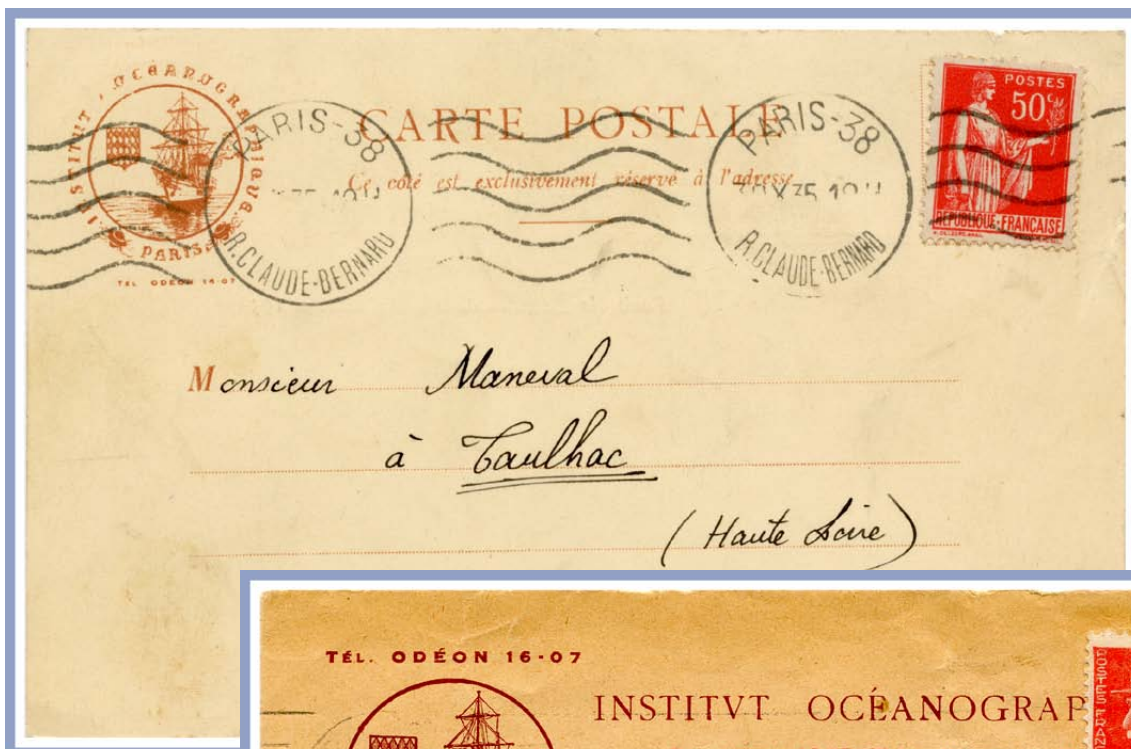 INSTITUT OCÉANOGRAPHIQUE
PARIS
TÉL. ODÉON 16-07
PARIS-38
R. CLAUDE-BERNARD
CARTE POSTALE
Ce côté est exclusivement réservé à l'adresse
PARIS-38
X 35
R. CLAUDE-BERNARD
POSTES
50c
REPUBLIQUE-FRANCAISE
Monsieur Maneval
à Taulhac
(Haute Loire)
TÉL. ODÉON 16-07
INSTITVT OCÉANOGRAP
POSTES FRAN